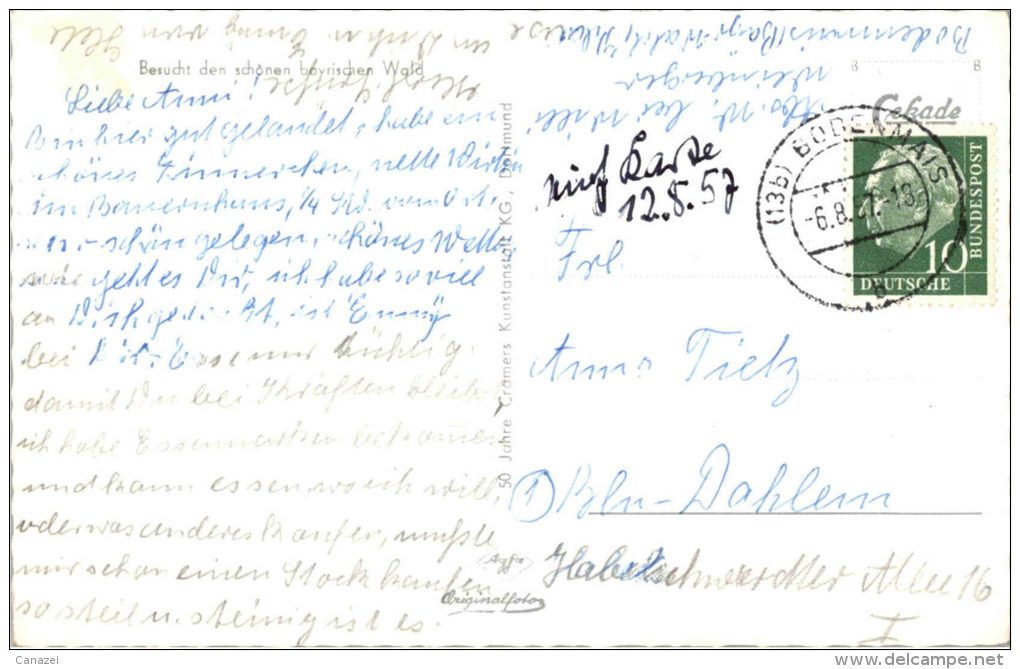 Besucht den schönen bayrischen Wald
Liebe Anni!
Bin hier gut gelandet, habe ein
schönes Zimmerchen, nette Wirtin
im Bauernhaus, 1/4 Std. vom Ort,
schön gelegen, schönes Wetter
wie geht es Dir, ich habe so viel
an Dich gedacht, ist Emmy
bei Dir. Esse nur tüchtig
damit Du bei Kräften bleibst
ich habe Essenmarken bekommen
und kann essen, wo ich will,
oder was anderes kaufen, mußte
mir schon einen Stock kaufen
so steil u. steinig ist es.
50 Jahre Cramers Kunstanstalt KG, Dortmund
Agfa
Originalfoto
Cekade
Karte
12.8.57
(13b) BODENMAIS
-6.8.57.-18
10
DEUTSCHE
BUNDESPOST
Frl.
Anna Tietz
1 Bln-Dahlem
Habelschwerdter Allee 16
I
Canazei
www.delcampe.net